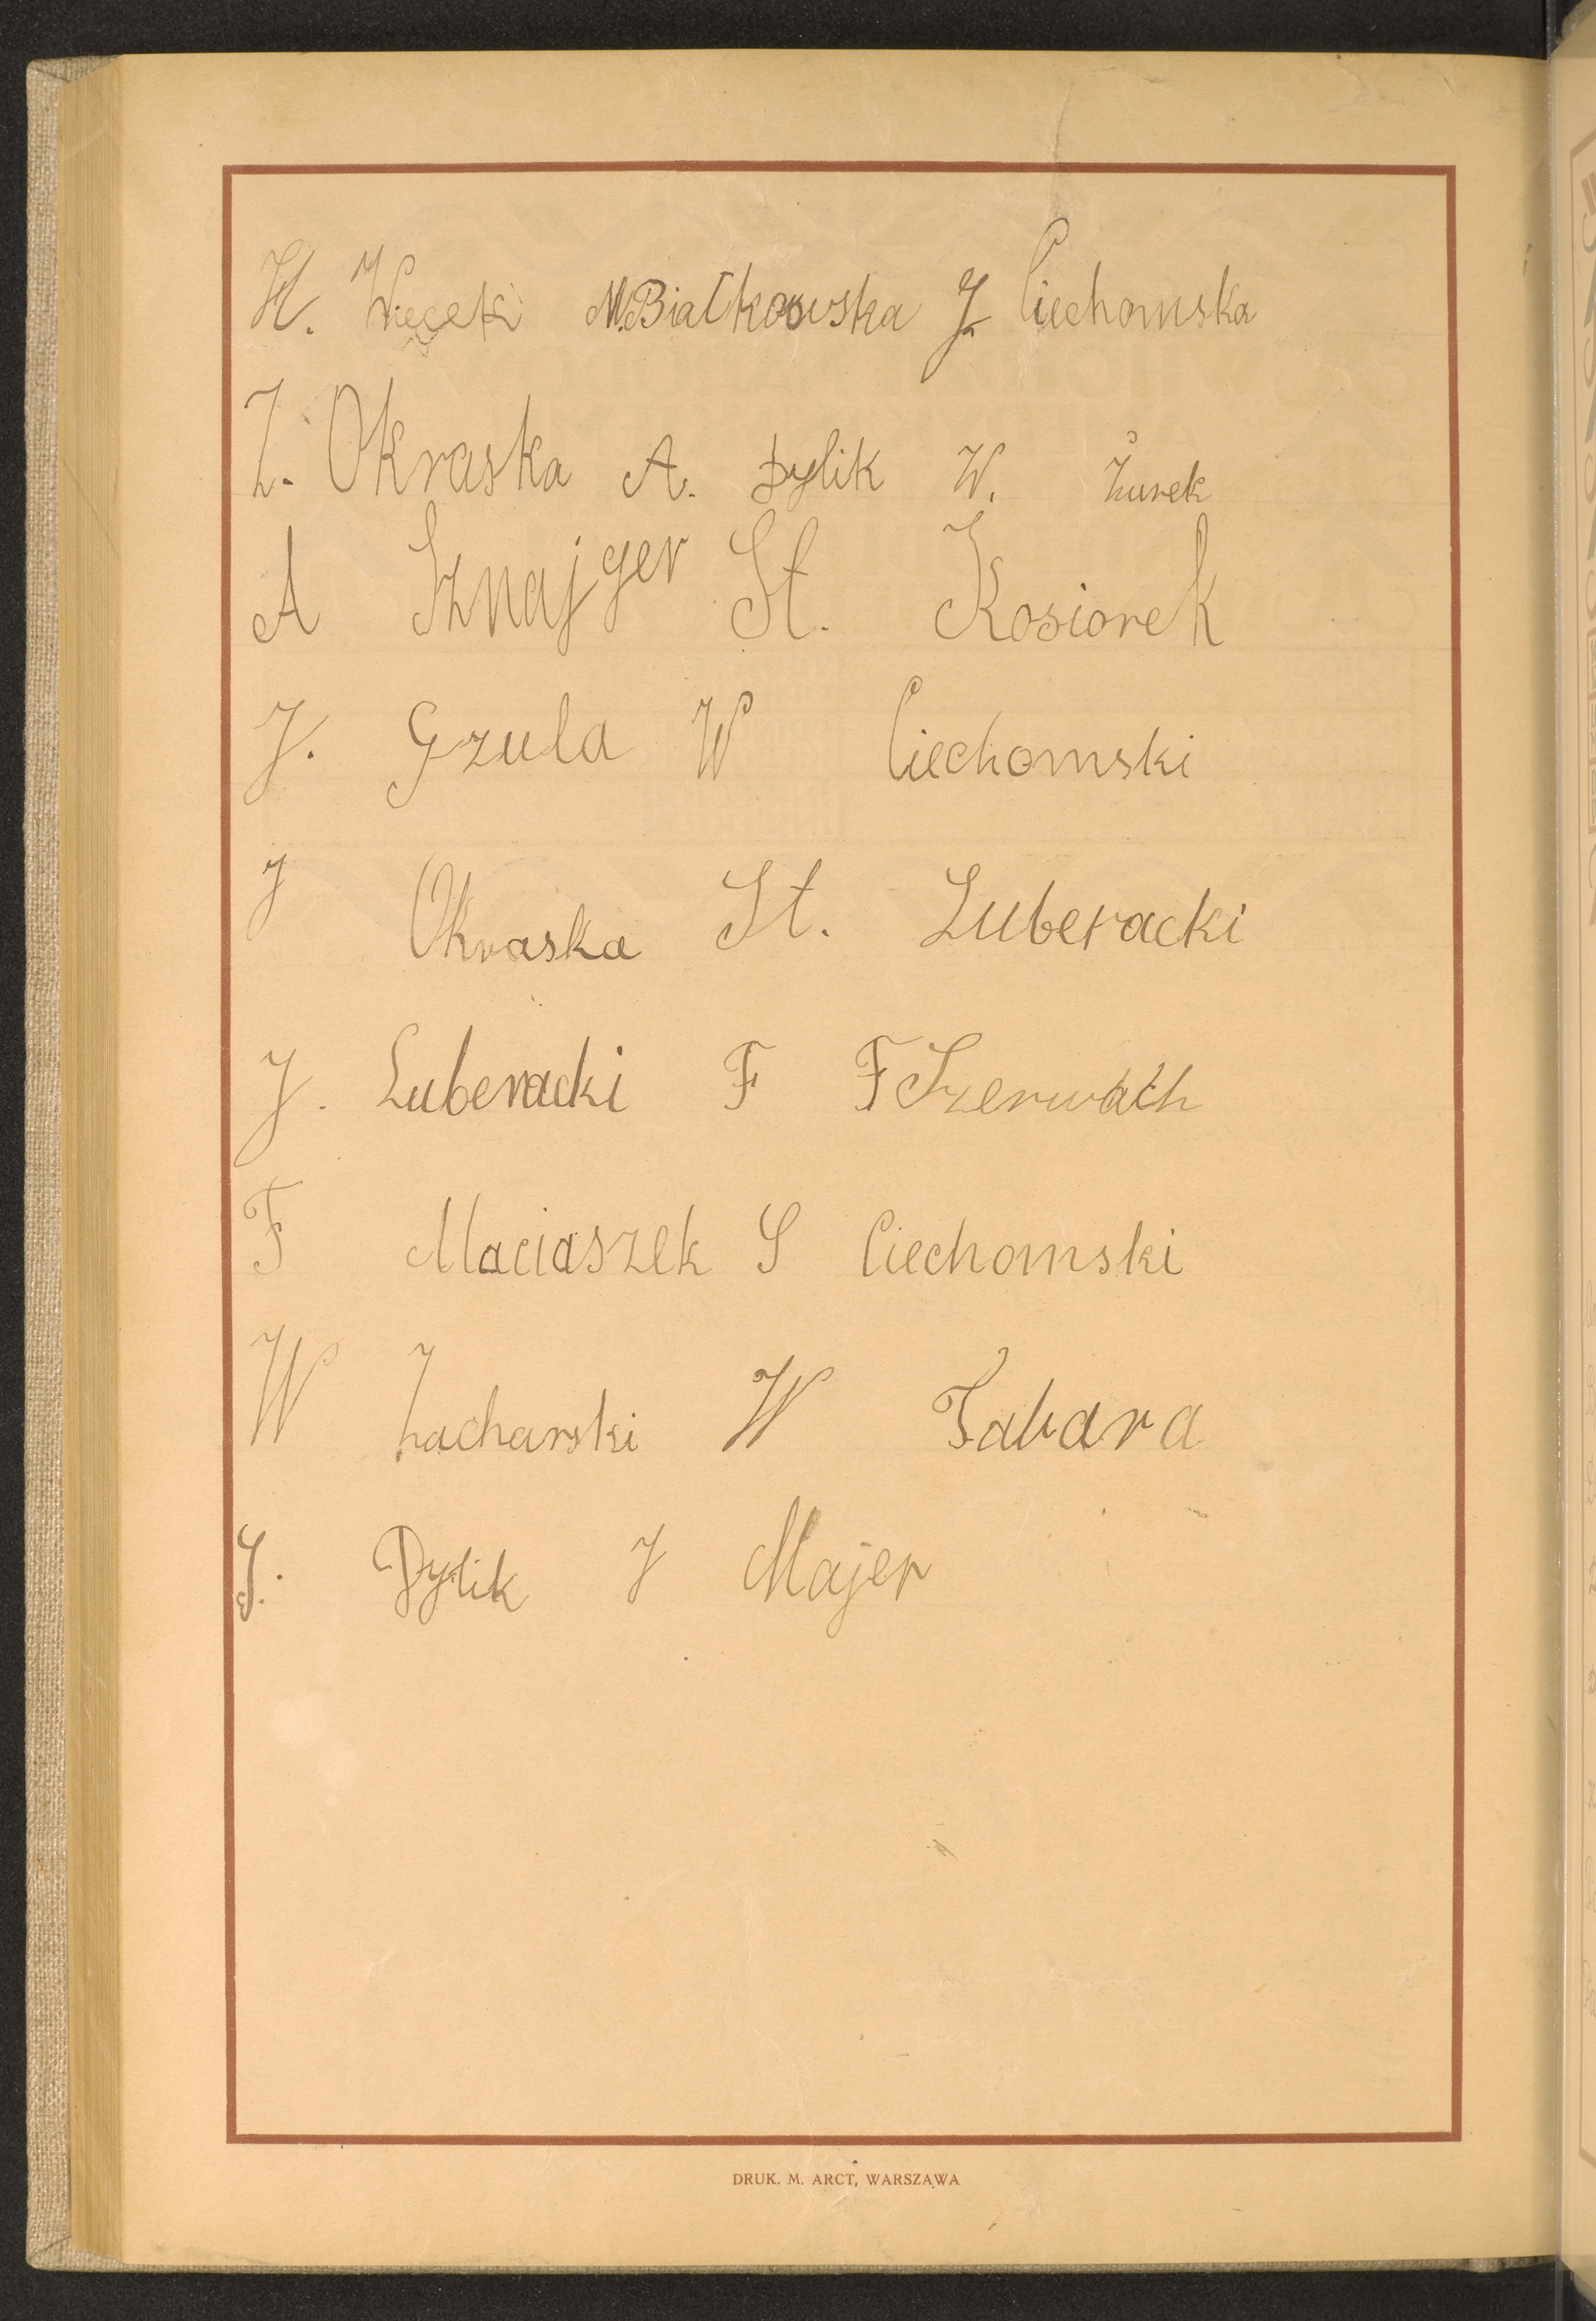 H. Więcek M. Białkowska J. Ciechomska
Z. Okraska A. Dylik W. Żurek
A Sznajger St. Kosiorek
J. Gzula W Ciechomski
J Okraska St. Luberacki
J. Luberacki F F Szerwath
F Maciaszek S Ciechomski
W Zacharski W Tabara
J. Dylik J Majer
DRUK. M. ARCT, WARSZAWA